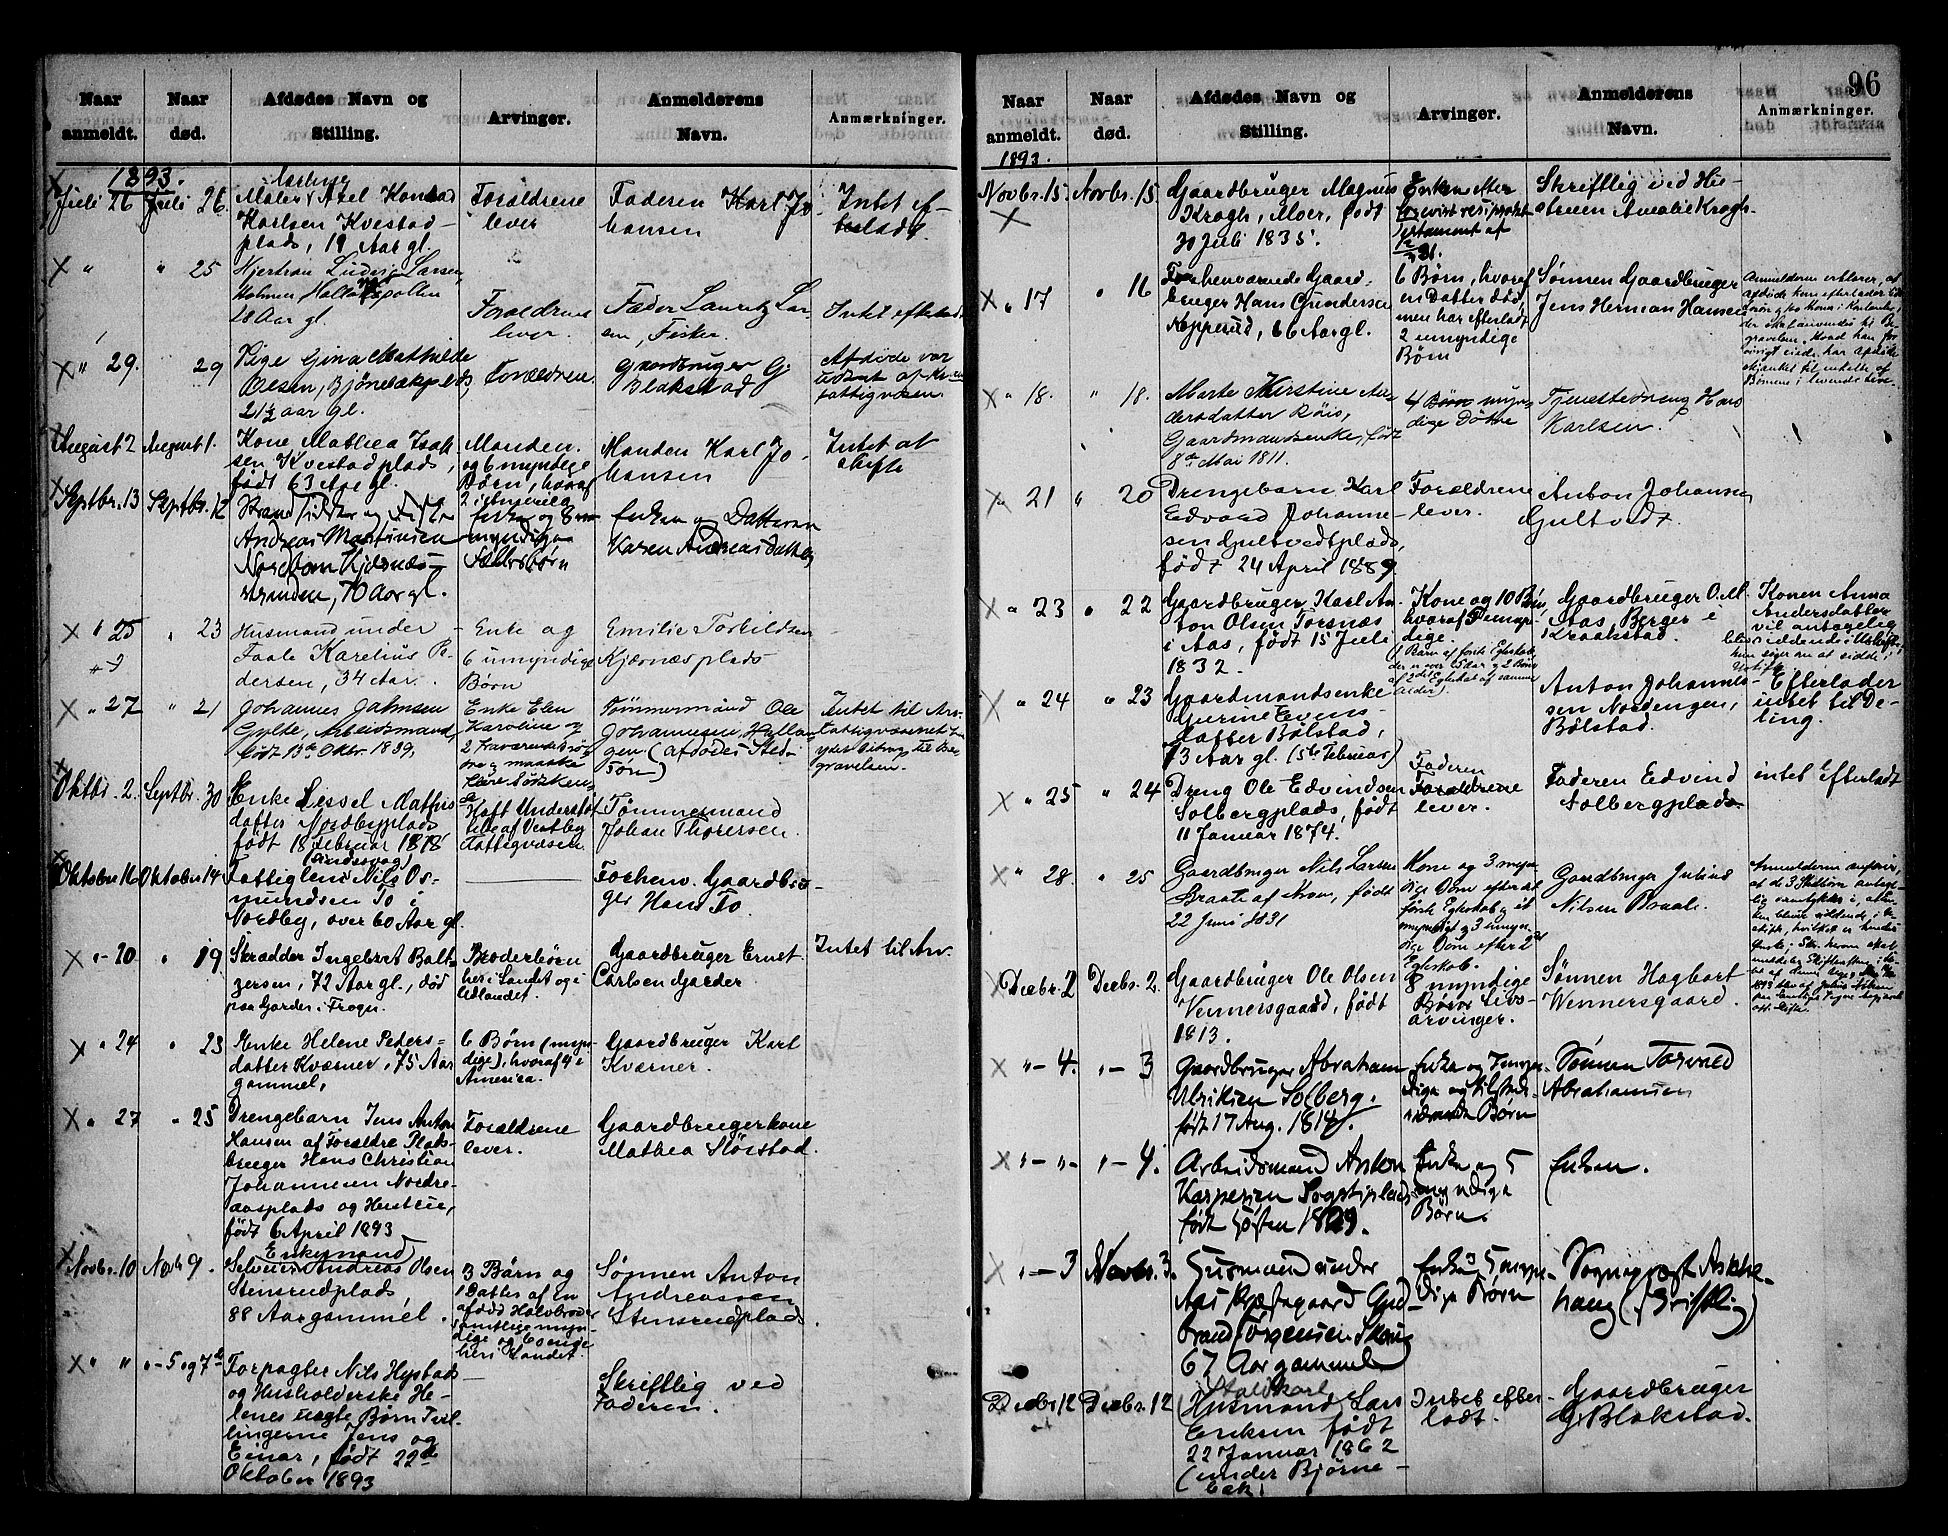 96
Naar anmeldt.
Naar død.
Afdødes Navn og Stilling.
Arvinger.
Anmelderens Navn.
Anmærkninger.
1893.
Juli 26
Juli 26.
Maler Axel
Karlsen Kvestad-
plads, 19 Aar gl.
Forældrene
lever
Faderen Karl Jo-
hansen
Intet ef-
terladt.
" 25
Ludvig Larsen,
28 Aar gl.
Forældrene
lever.
Fader Lauritz Lar-
sen, Fisker.
" 29.
29
Pige Gina Mathilde
Olsen,
21½ aar gl.
Forældrene.
Gaardbruger G.
Blakstad
Afdøde var
fattigvæsen
August 2
August 1.
Kone Mathea Isak-
sen Kvestadplads,
født 63 Aar gl.
Manden.
og 6 myndige
Børn, hvoraf
2 i Amerika
Manden Karl Jo-
hansen
Intet at
skifte
Septbr. 13
Septbr. 12
Andreas Martinsen
70 Aar gl.
Enken og
myndige
Fællesbørn
Enken og Datteren
Karen Andreasdatter
" 25
" 23
Husmand under
Faale Karelius Pe-
dersen, 34 Aar.
Enke og
6 umyndige
Børn
Emilie Torkildsen
Kjærnæsplads
" 27
" 21
Johannes Jahnsen
Gylte, Arbeidsmand,
født 13de Oktr. 1839,
Enke Elen
Karoline og
Tømmermand Ole
Johannesen,
(afdødes Sted-
søn)
Intet til Arv.
Fattigvæsenet
yder Bidrag til Be-
gravelsen.
Oktbr. 2.
Septbr. 30
Enke Lessel Mathis-
datter Nordbyplads
født 18 Februar 1818
Havt Understøt
telse af Vestby
Fattigvæsen
Tømmermand
Johan Thoresen.
Oktober 16
Oktober 14
(Sindssvag)
Fattiglem Nils Os-
mundsen To i
Nordby, over 60 Aar gl.
Forhenv. Gaardbru-
ger Hans To.
" 20
" 19.
Skrædder Ingebret Balt-
zersen, 72 Aar gl., død
paa Garder i Frogn.
Broderbørn
her i Landet og i
Udlandet.
Gaardbruger Ernst
Carlsen Garder
Intet til Arv.
" 24
" 23
Enke Helene Peders-
datter Kværner, 75 Aar
gammel,
6 Børn (myn-
dige), hvoraf 4 i
America.
Gaardbruger Karl
Kværner.
" 27
" 25
Drengebarn Jens Anton
Hansen af Forældre Plads-
bruger Hans Christian
Johannesen Nordre-
aasplads og Hustru,
født 6 April 1893
Forældrene
lever.
Gaardbrugerkone
Mathea Slørstad.
Novbr. 10
Novb. 9.
Enkemand
Andreas Olsen
Stensrudplads,
88 Aar gammel.
3 Børn og
1 Datter af en
afdød Halvbroder
samtlige myn-
dige og bosidde
her i Landet.
Sønnen Anton
Andreassen
Stensrudplads
" "
" - 5 og 7de
Forpagter Nils Hystad
og Husholderske He-
lenes uægte Børn Tvil-
lingerne Jens og
Einar, født 22de
Oktober 1893
Skriftlig ved
Faderen.
Naar anmeldt.
Naar død.
Afdødes Navn og Stilling.
Arvinger.
Anmelderens Navn.
Anmærkninger.
1893.
Novbr. 15.
Novbr. 15.
Gaardbruger Magnus
Krogh, Moer, født
30 Juli 1835.
Enken efter
Testament af
Skriftlig ved Hu-
struen Amalie Krogh.
" 17
" 16
Forhenværende Gaard-
bruger Hans Gundersen
Nepperud, 66 Aar gl.
6 Børn, hvoraf
en Datter død,
men har efterladt
2 umyndige
Børn
Sønnen Gaardbruger
Jens Herman Hansen
Anmelderen erklærer, at
" 18.
" 18.
Marte Kirstine An-
dersdatter Røis,
Gaardmandsenke, født
8de Mai 1811.
4 myn-
dige Døtre
Tjenestedreng Hans
Karlsen.
" 21
" 20
Drengebarn Karl
Edvard Johanne-
sen Gultvedtplads,
født 24 April 1889
Forældrene
lever.
Anton Johansen
Gultvedt.
" 23
" 22
Gaardbruger Karl An-
ton Olsen Torsnæs
i Aas, født 15 Juli
1832.
Kone og 10 Børn,
hvoraf 5 umyn-
dige.
Gaardbruger O. M.
Aas Berger i
Kraakstad.
Konen Anna
Andersdatter
vil antagelig
blive siddende i Uskifte,
hun siger nu at sidde i
Uskifte
" 24
" 23
Gaardmandsenke
Gurine Evens-
datter Bølstad,
73 Aar gl. (5te Februar)
Anton Johannes-
sen Nordengen,
Bølstad.
Efterlader
intet til De-
ling.
" 25
" 24
Dreng Ole Edvindsen
Solbergplads, født
11 Januar 1874.
Faderen
Forældrene
lever.
Faderen Edvind
Solbergplads
intet Efterladt
" 28.
" 25
Gaardbruger Nils Larsen
Braate af Kroer, født
22 Juni 1831
Kone og 3 myn-
dige Børn efter et
første Egteskab og et
myndigt og 3 umyn-
dige Børn efter 2det
Egteskab.
Gaardbruger Julius
Nilsen Braate.
Decbr. 2
Decbr. 2.
Gaardbruger Ole Olsen
Vennersgaard, født
1813.
8 myndige
Børn Livs-
arvinger.
Sønnen Hagbart
Wennersgaard.
" - 4.
" - 3
Gaardbruger Abraham
Ulriksen Solberg.
født 17 Aug. 1814.
Enke og 7 myn-
dige og tilsted-
værende Børn
Sønnen Torvald
Abrahamsen
" - " -
" - 4.
Arbeidsmand Anton
Kaspersen Sogstiplads
født Høsten 1829.
Enke og 5
myndige
Børn.
Enken.
" - 3
Novbr. 3.
Husmand under
Aas Præstegaard Gud-
brand Jørgensen Skoug
67 Aar gammel
Enke og 5 myn-
dige Børn
Sogneprest Aske-
haug (skriftlig)
Decbr 12
Decbr. 12
Staldkarl
(Husmand) Lars
Eriksen født
22 Januar 1862
(under Bjørne-
bæk)
Intet efter-
ladt.
Gaardbruger
G. Blakstad.